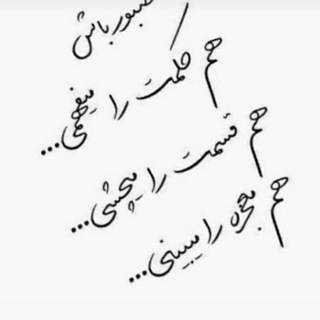 صبور باش
هم حکمت را میفهمی...
هم قسمت را میچشی...
هم معجزه را میبینی...